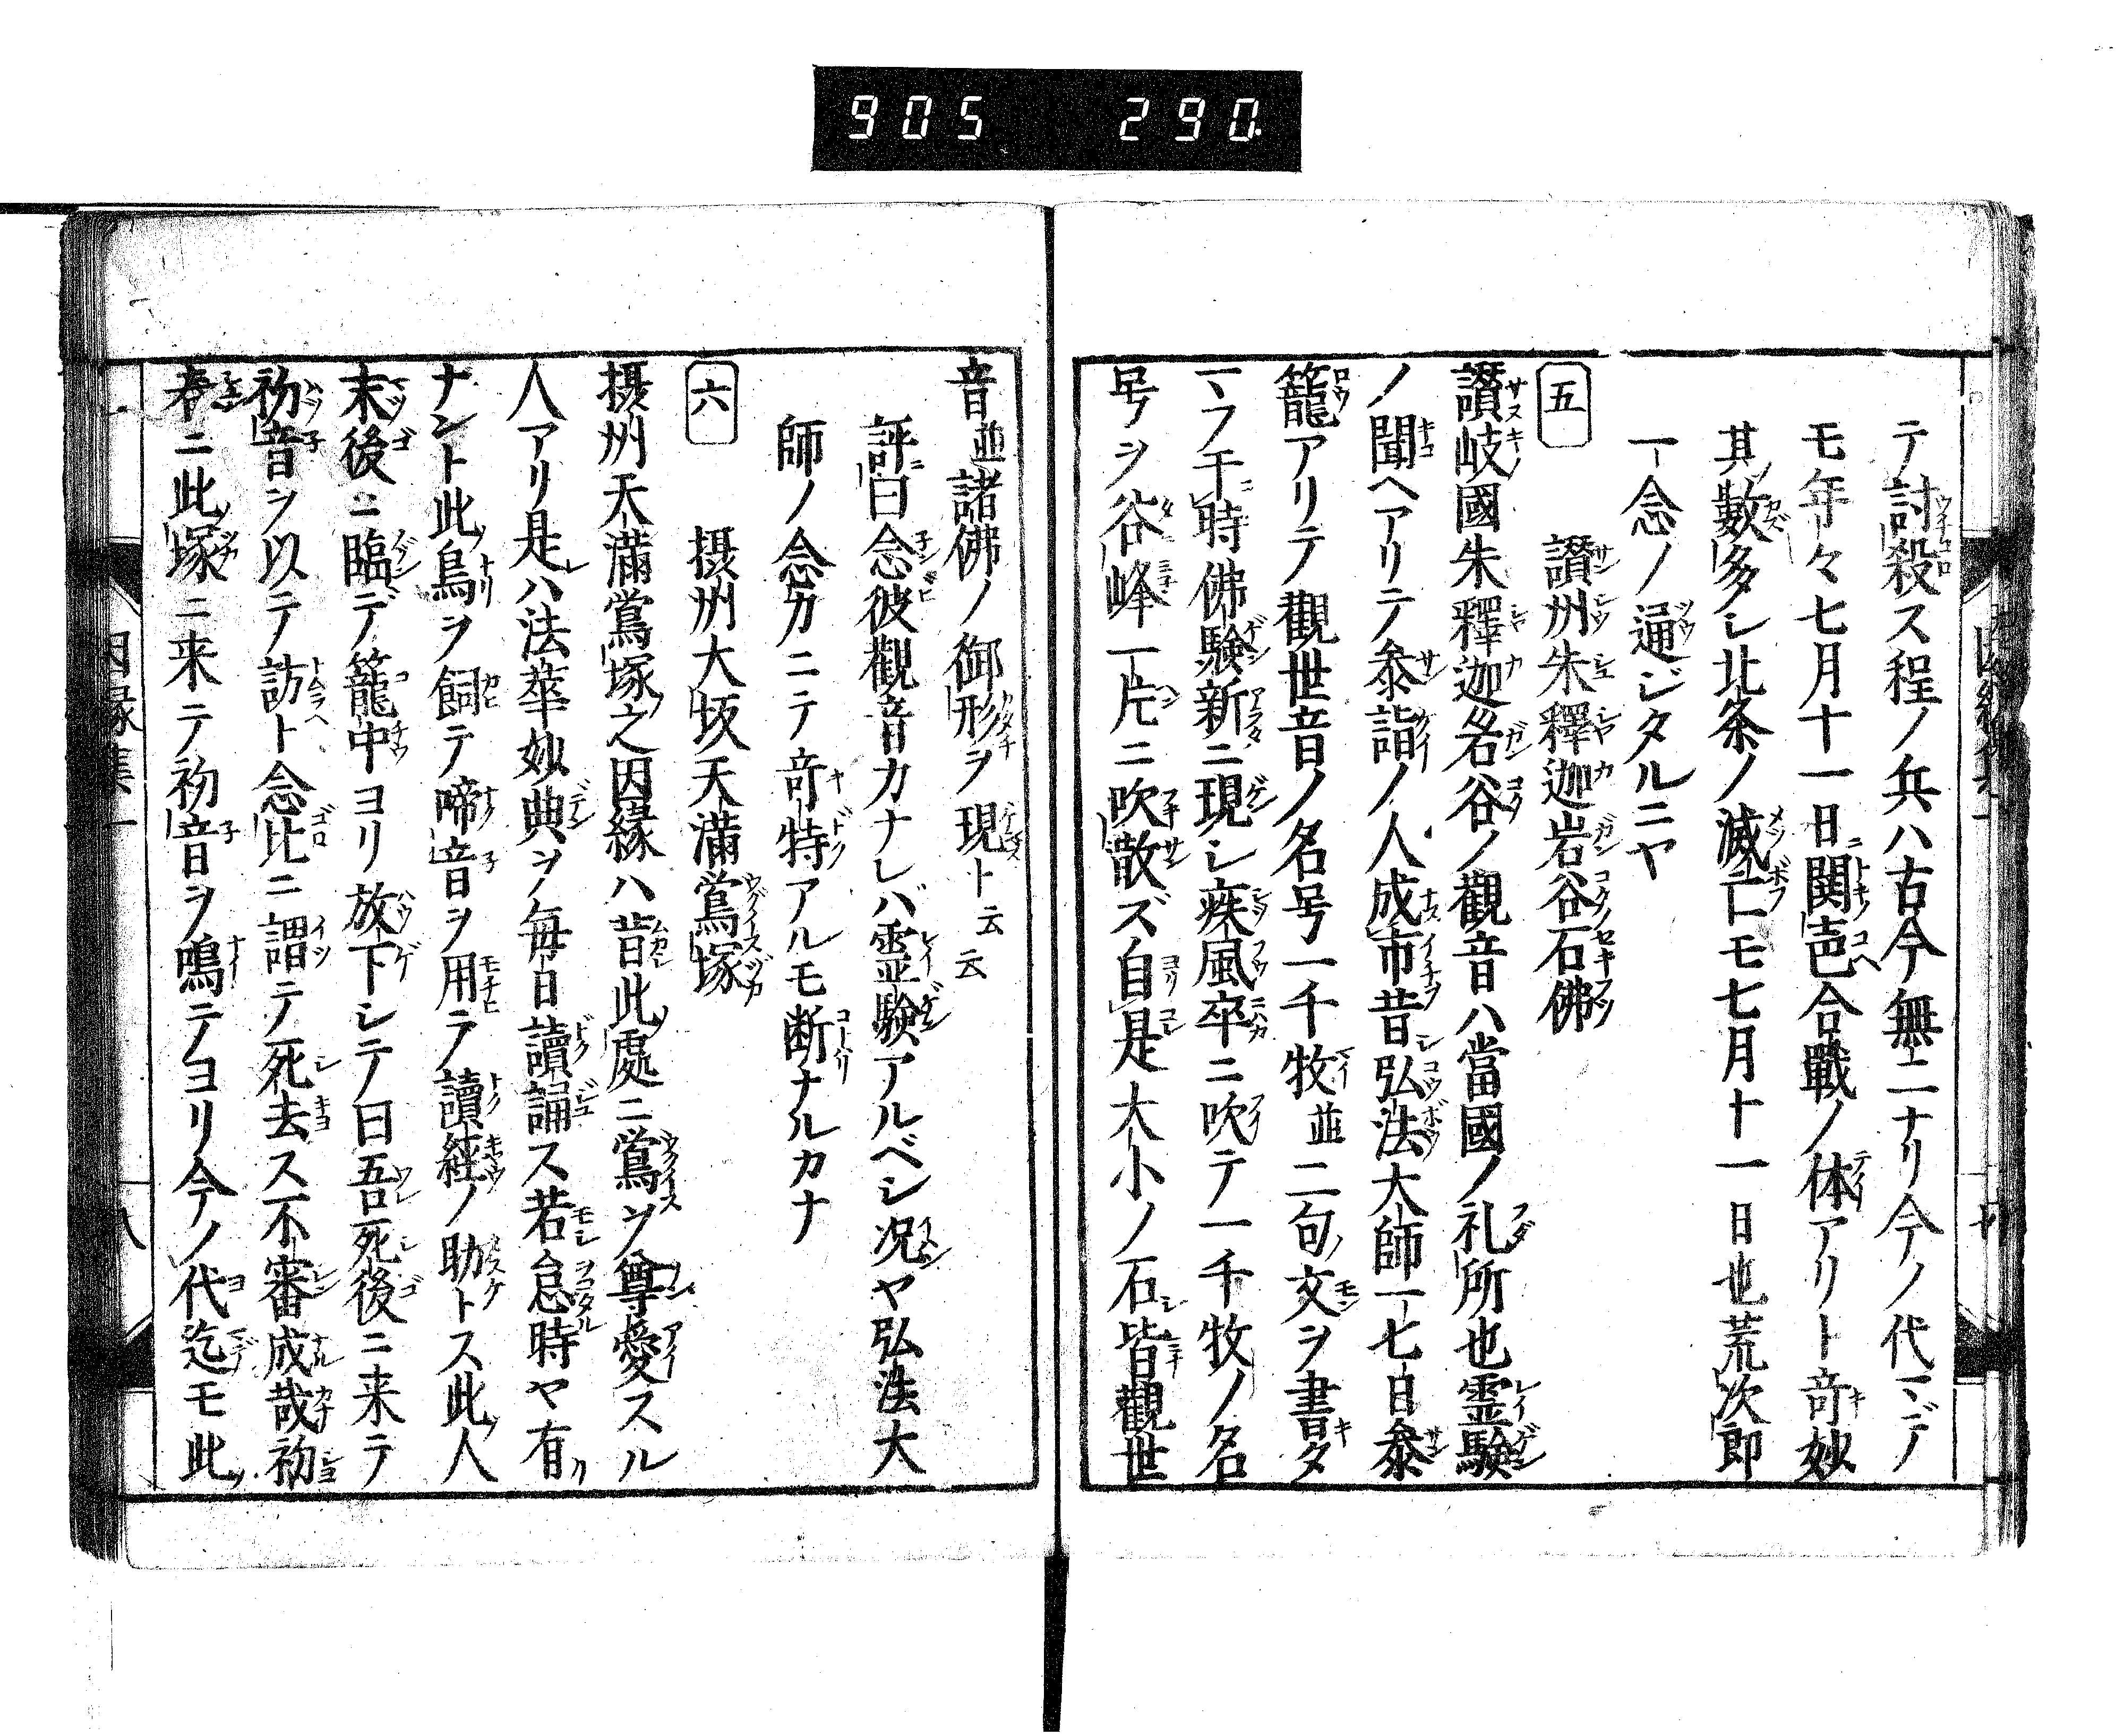 905 290
テ討殺ス程ノ兵ハ古今無二ナリ今ノ代マデノ
モ年々七月十一日関㖠合戰ノ体アリト竒妙
其數多シ北条ノ滅亡モ七月十一日也荒次郎
一念ノ通ジタルニヤ
五 讃州朱釋迦岩谷石佛
讃岐國朱釋迦嵓谷ノ觀音ハ當國ノ礼所也霊験
ノ聞ヘアリテ叅詣ノ人成市昔弘法大師一七日叅
籠アリテ觀世音ノ名号一千牧並二句文ヲ書タ
マフ于時佛験新ニ現シ疾風卒ニ吹テ一千牧ノ名
号ヲ谷峰一片ニ吹散ズ自是大小ノ石皆觀世
音並諸佛ノ御形ヲ現ト云云
評曰念彼觀音力ナレバ霊験アルベシ况ヤ弘法大
師ノ念力ニテ竒特アルモ断ナルカナ
六 摂州大坂天滿鴬塚
摂州天滿鴬塚之因縁ハ昔此處ニ鴬ヲ尊愛スル
人アリ是ハ法華妙典ヲ每日讀誦ス若怠時ヤ有
ナント此鳥ヲ飼テ啼音ヲ用テ讀經ノ助トス此人
末後ニ臨デ籠中ヨリ放下シテ曰吾死後ニ来テ
初音ヲ以テ訪ト念比ニ謂テ死去ス不審成哉初
春ニ此塚ニ来テ初音ヲ鳴テヨリ今ノ代迄モ此
因縁集一 八